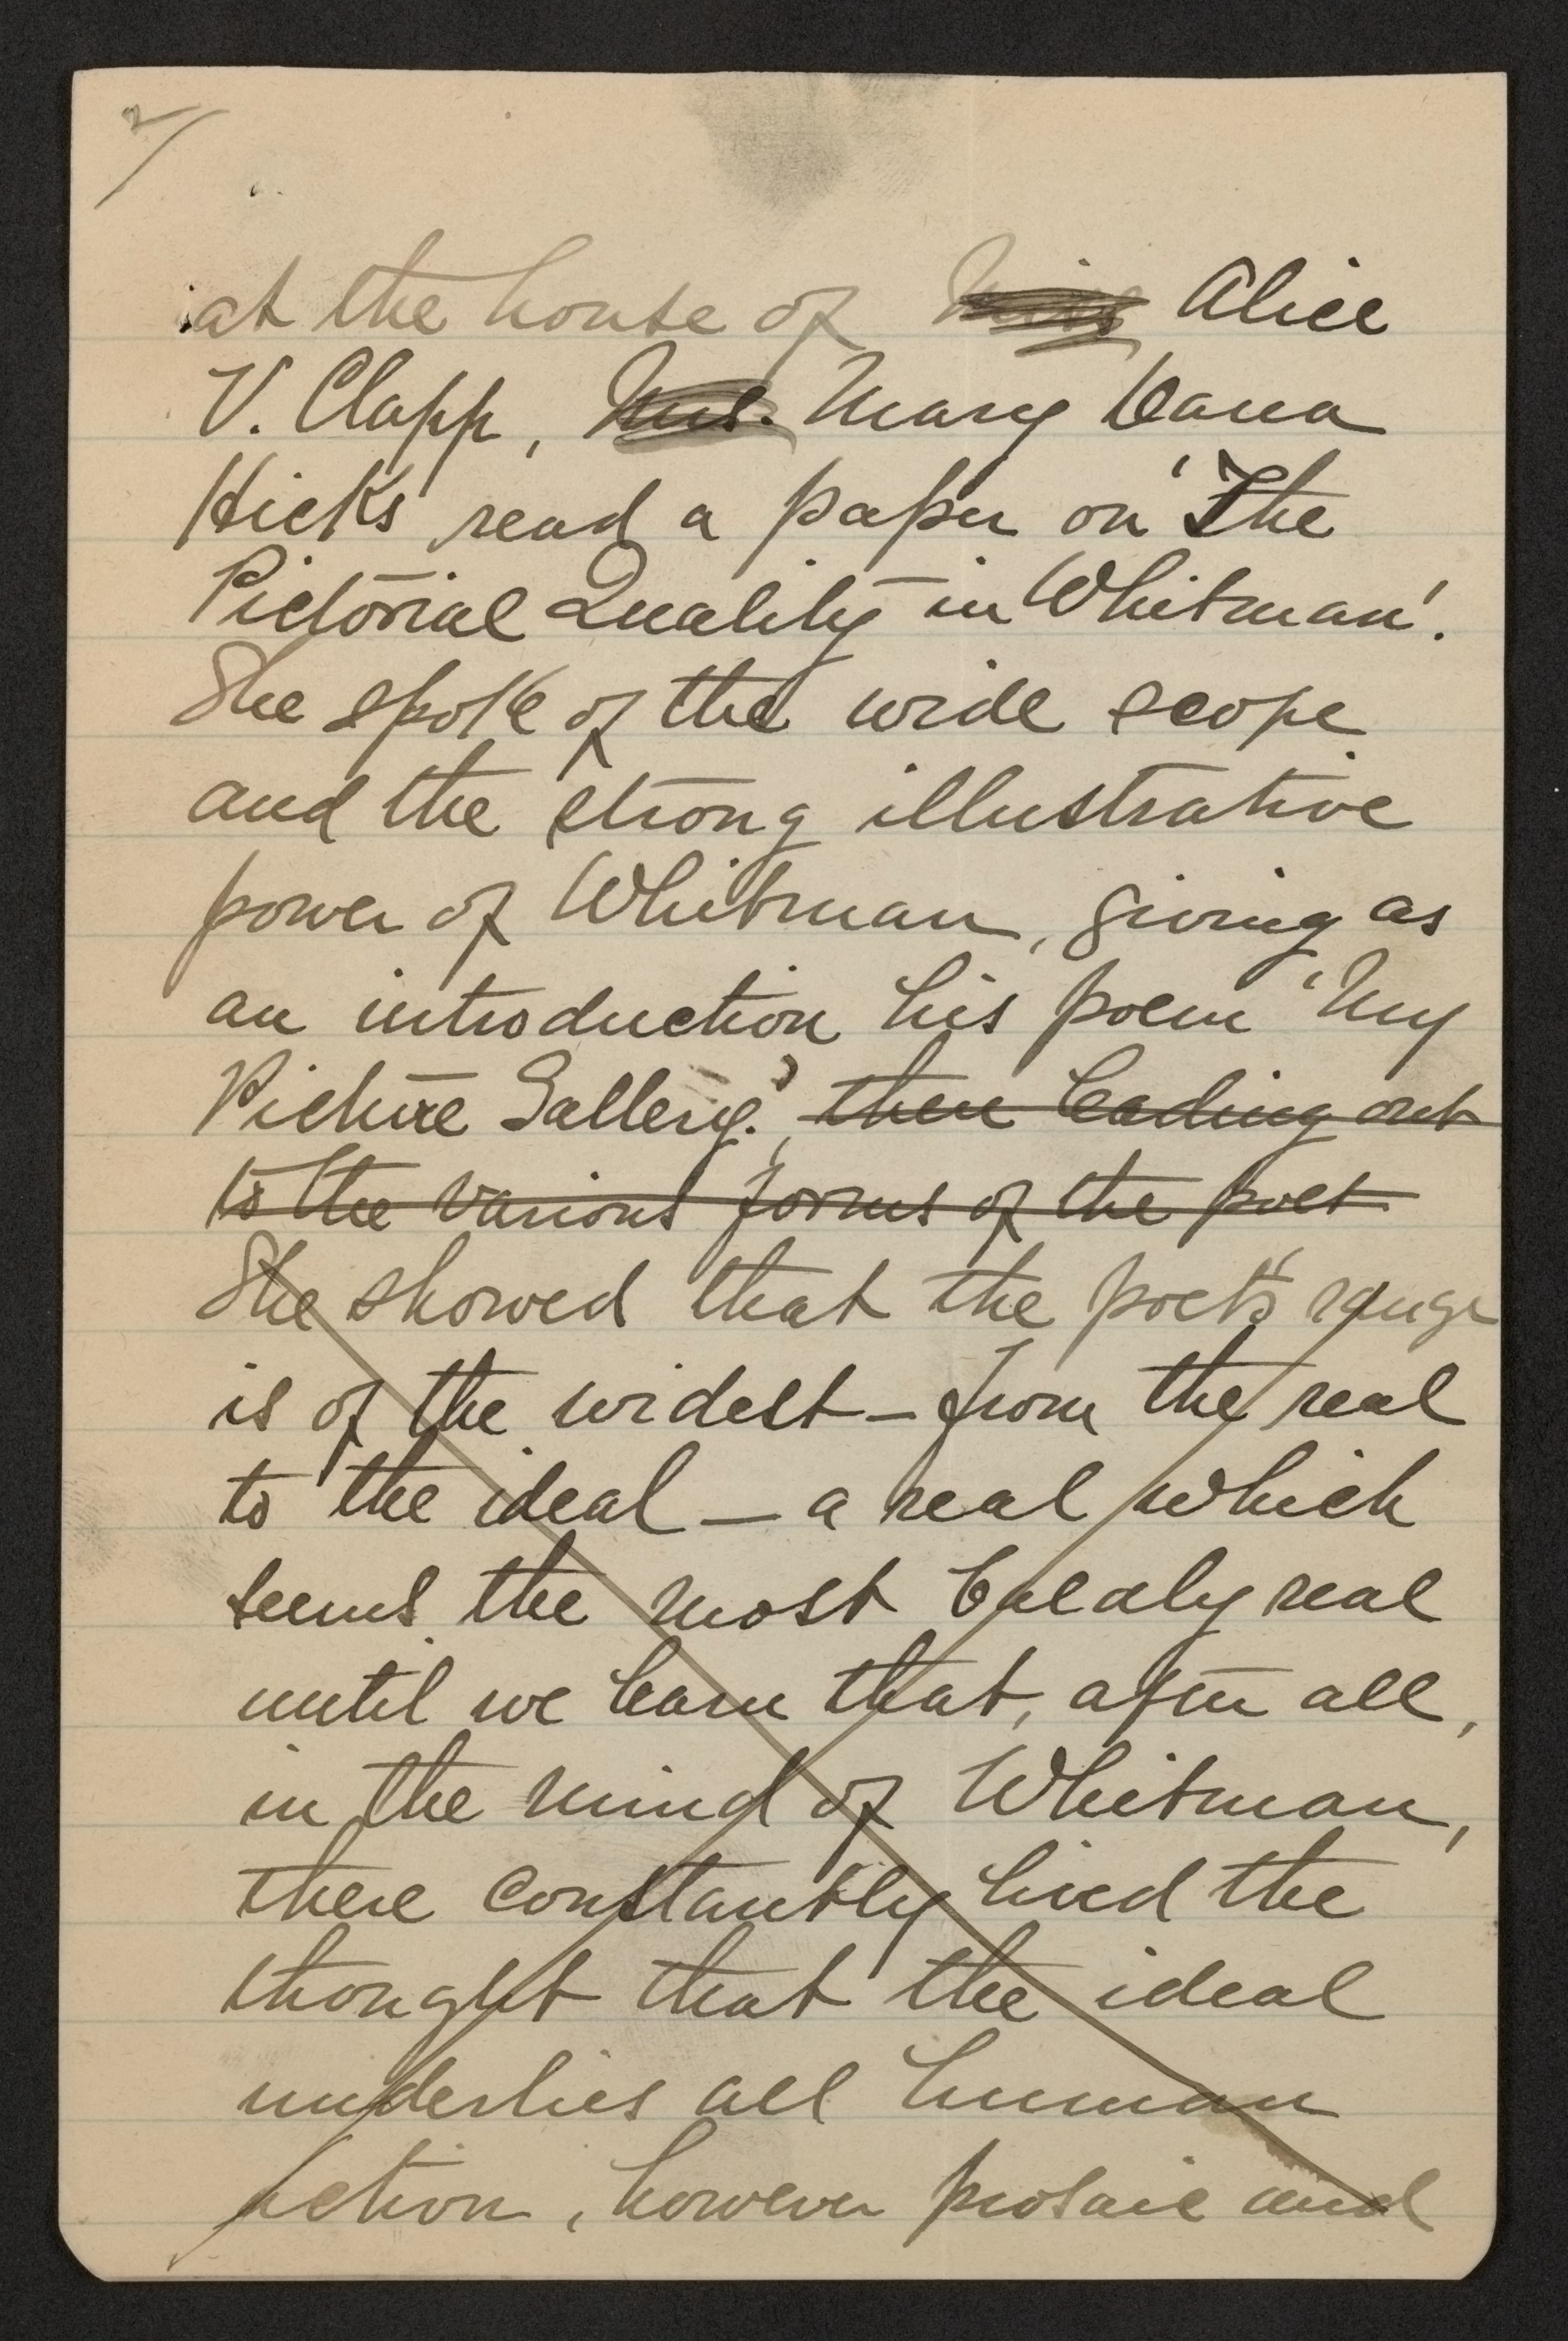 2/
at the house of Miss Alice
V. Clapp, Mrs. Mary Dana
Hicks read a paper on 'The
Pictorial Quality in Whitman'.
She spoke of the wide scope
and the strong illustrative
power of Whitman, giving as
an introduction his poem 'My
Picture Gallery.', then leading out
to the various forms of the poet
She showed that the poet's range
is of the widest – from the real
to the ideal – a real which
seems the most baldly real
until we learn that, after all,
in the mind of Whitman,
there constantly lived the
thought that the ideal
underlies all human
action, however prosaic and